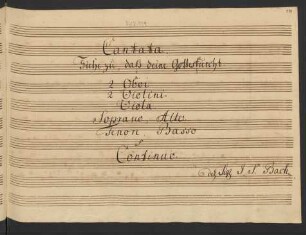 Cantata.
Siehe zu, daß deine Gottesfurcht
2 Oboi
2 Violini
Viola
Soprano Alto
Tenore Basso
Continuo.
del Sig. J. S. Bach